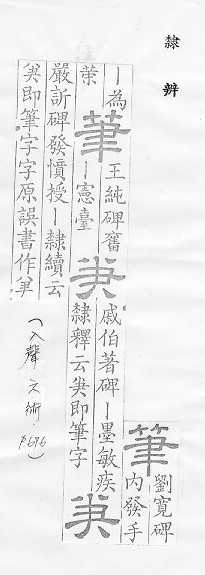 隸辨
筆
劉寬碑
內發手
｜為
筆
王純碑奮
｜憲臺
戚伯著碑｜墨敏疾
隸釋云 即筆字
嚴訢碑發憤授｜隸續云
即筆字字原誤書作
(入聲·文術·P676)